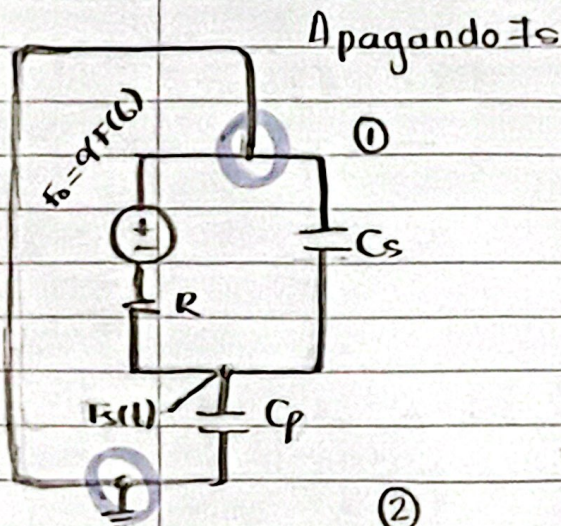 Apagando Fs
①
F₀=αF(t)
+
-
Cs
R
Fs(t)
Cp
②